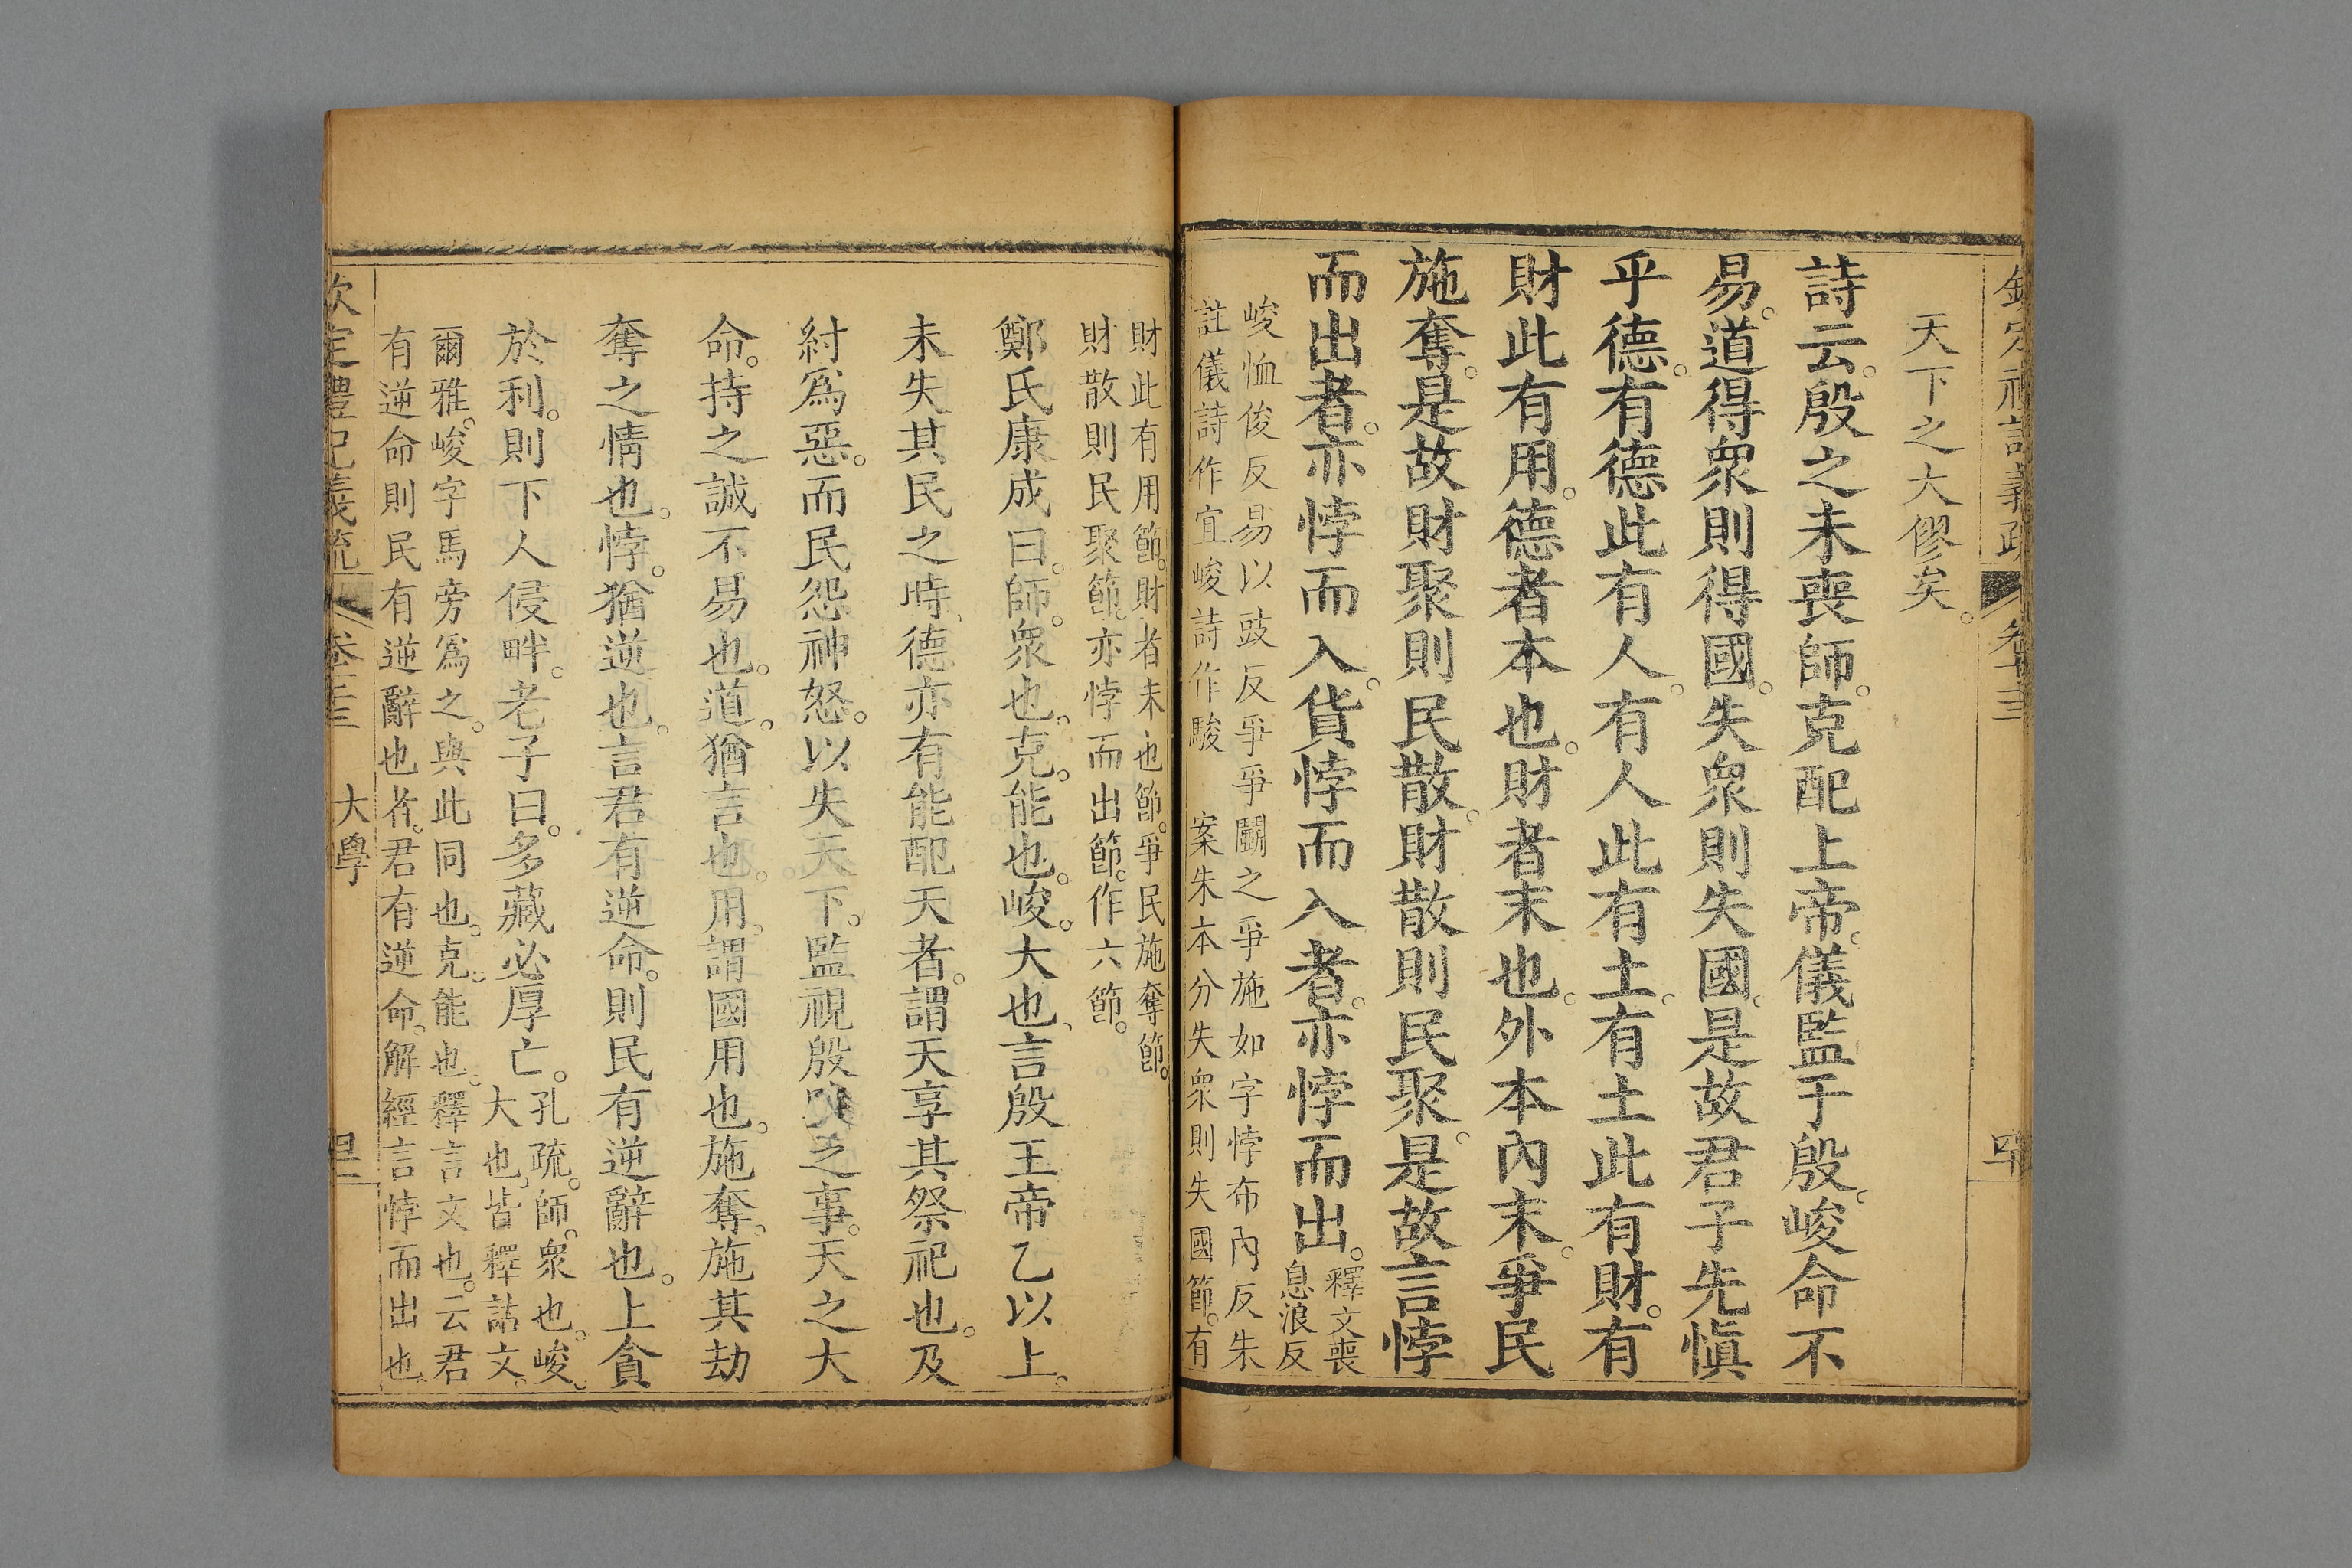 天下之大僇矣。
詩云。殷之未喪師。克配上帝。儀監于殷。峻命不
易。道得衆則得國。失衆則失國。是故君子先愼
乎德。有德此有人。有人此有土。有土此有財。有
財此有用。德者本也。財者末也。外本內末。爭民
施奪。是故財聚則民散。財散則民聚。是故言悖
而出者。亦悖而入。貨悖而入者。亦悖而出。釋文喪
息浪反
峻恤俊反易以豉反爭爭鬭之爭施如字悖布內反朱
註儀詩作宜峻詩作駿 案朱本分失衆則失國節。有
財此有用節。財者末也節。爭民施奪節。
財散則民聚節。亦悖而出節。作六節。
鄭氏康成曰。師。衆也。克。能也。峻。大也。言殷王帝乙以上。
未失其民之時。德亦有能配天者。謂天享其祭祀也。及
紂爲惡。而民怨神怒。以失天下。監視殷時之事。天之大
命。持之誠不易也。道。猶言也。用。謂國用也。施奪。施其劫
奪之情也。悖。猶逆也。言君有逆命。則民有逆辭也。上貪
於利。則下人侵畔。老子曰。多藏必厚亡。孔疏。師。衆也。峻。
大也。皆釋詁文。
爾雅。峻字馬旁爲之。與此同也。克。能也。釋言文也。云君
有逆命則民有逆辭也者。君有逆命。解經言悖而出也。
卷七十三
大學